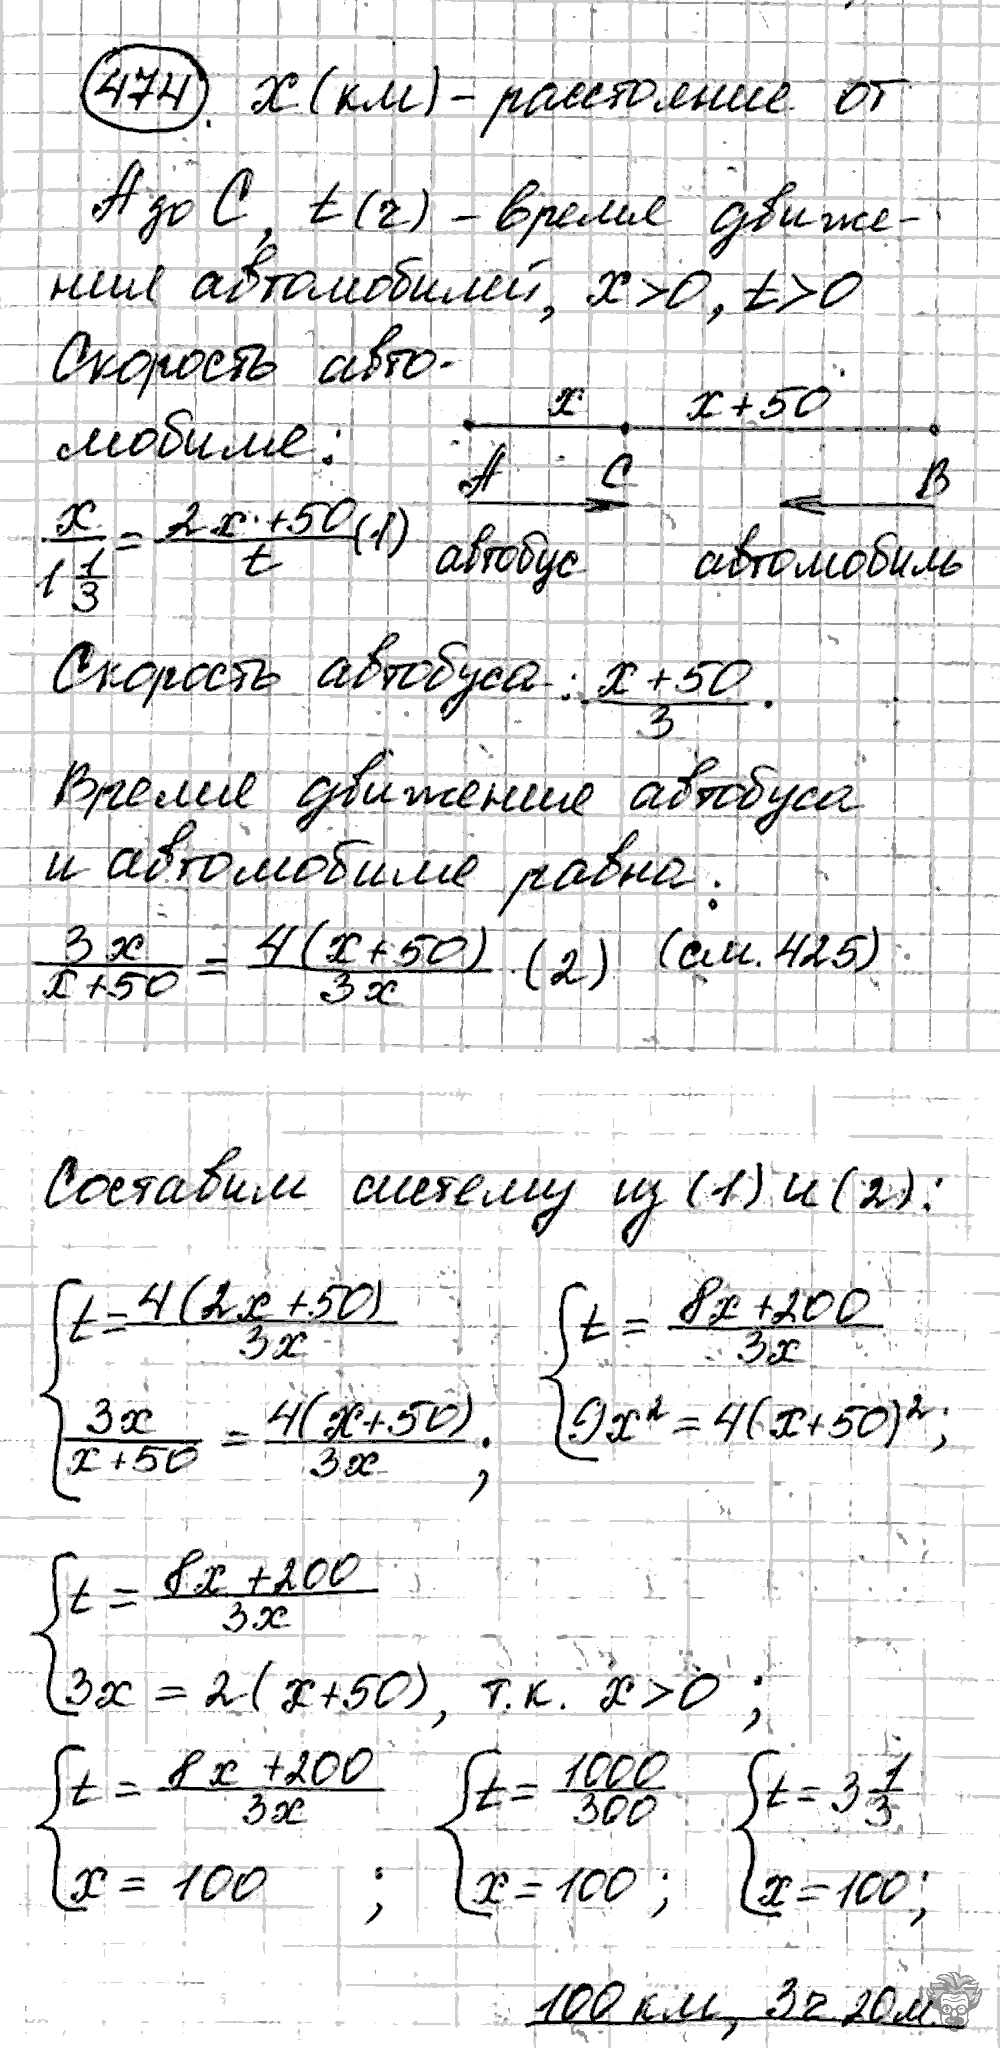 474. x(км) – расстояние от
A до C, t(ч) – время движе-
ния автомобилей, x>0, t>0
Скорость авто-
мобиля:
x x+50
A C B
x/1 1/3 = 2x+50/t (1)
автобус автомобиль
Скорость автобуса: x+50/3.
Время движения автобуса
и автомобиля равна:
3x/x+50 = 4(x+50)/3x (2) (см. 425)
Составим систему из (1) и (2):
{ t = 4(2x+50)/3x
3x/x+50 = 4(x+50)/3x ;
{ t = 8x+200/3x
9x² = 4(x+50)²;
{ t = 8x+200/3x
3x = 2(x+50), т.к. x>0 ;
{ t = 8x+200/3x
x = 100 ;
{ t = 1000/300
x = 100 ;
{ t = 3 1/3
x = 100;
100 км, 3ч 20м.